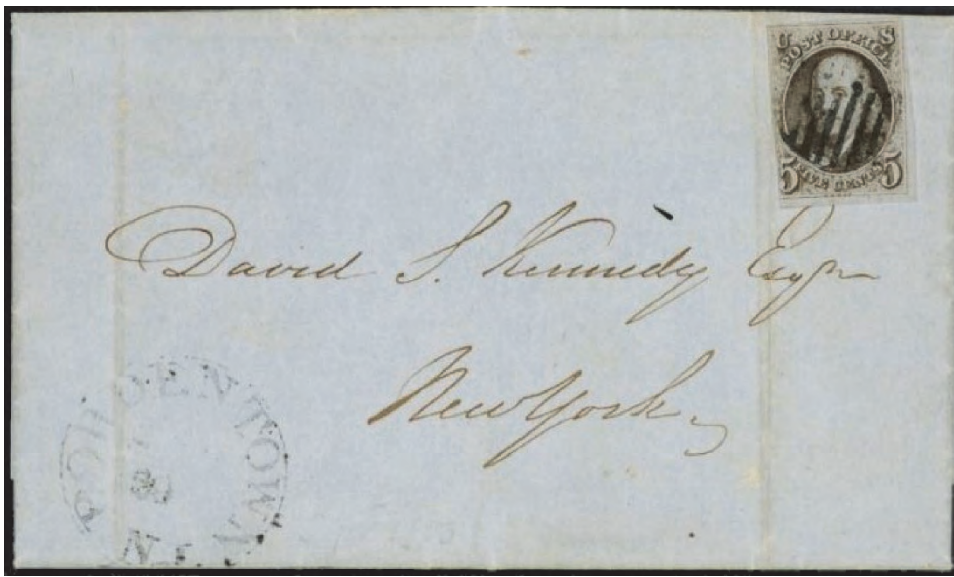 U S
POST OFFICE
5 FIVE CENTS 5
David S. Kennedy Esqr
New York
BORDENTOWN
30
N.J.